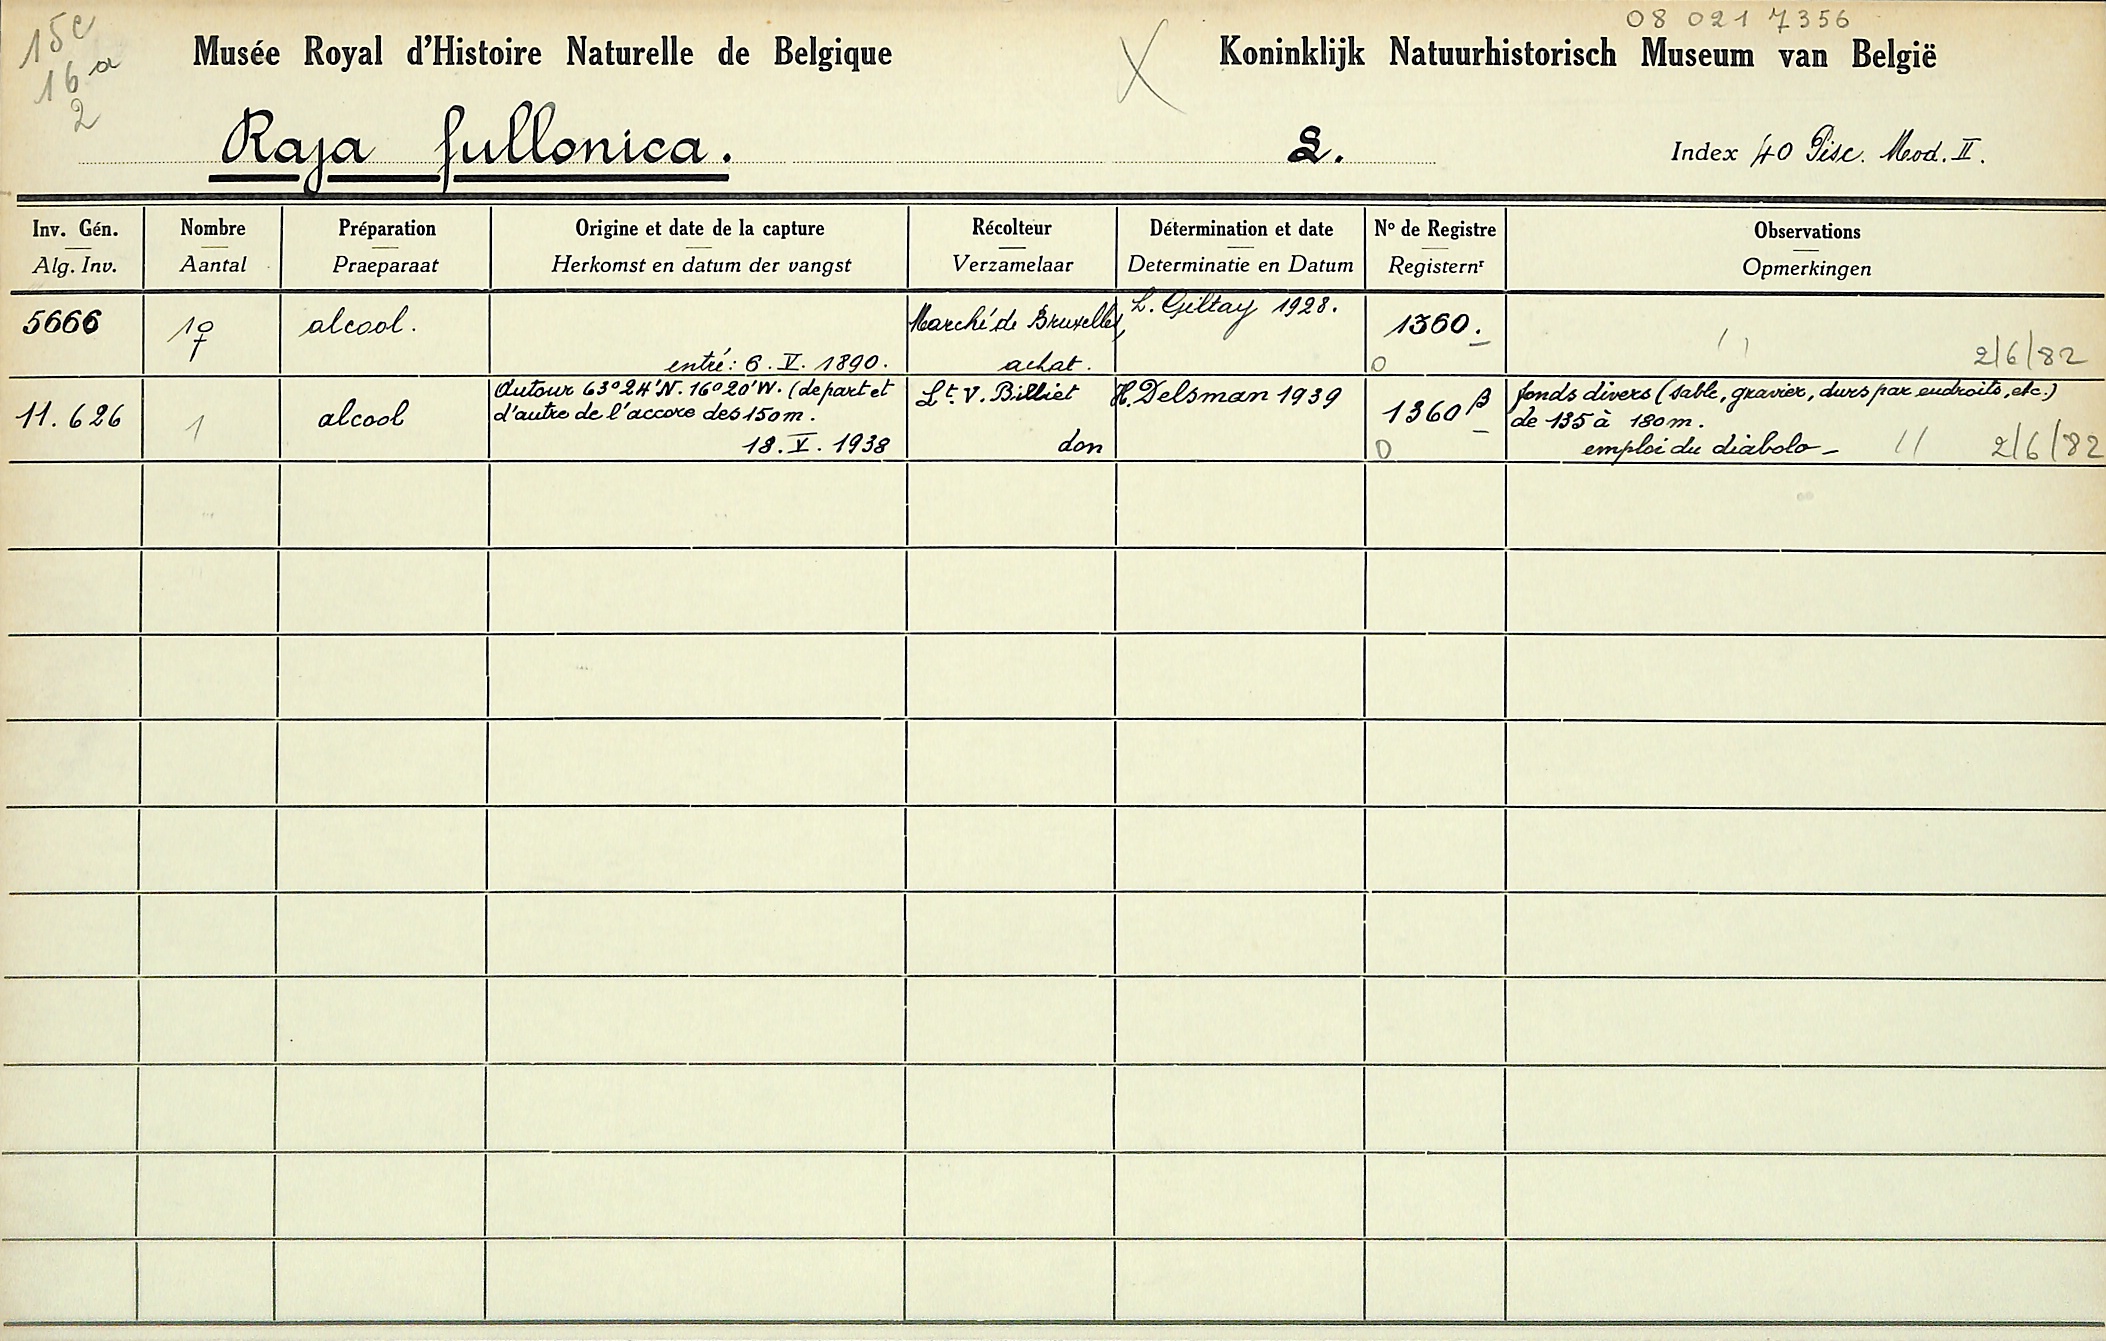 15c
16a
2
08 021 7356
Musée Royal d'Histoire Naturelle de Belgique
Koninklijk Natuurhistorisch Museum van België
Raja fullonica.
Index 40 Pisc. Mod. II.
Inv. Gén. Nombre Préparation Origine et date de la capture Récolteur Détermination et date Nº de Registre Observations
Alg. Inv. Aantal Praeparaat Herkomst en datum der vangst Verzamelaar Determinatie en Datum Registernʳ Opmerkingen
5666 1♀ alcool. Marché de Bruxelles, L. Giltay 1928. 1360.
entré: 6. V. 1890. achat. 0 2/6/82
11.626 1 alcool Autour 63°24'N. 16°20'W. (de part et Lt. V. Billiet H. Delsman 1939 1360β fonds divers (sable, gravier, durs par endroits, etc.)
d'autre de l'accore des 150 m. de 135 à 180 m.
18. V. 1938 don 0 emploi du diabolo - 2/6/82